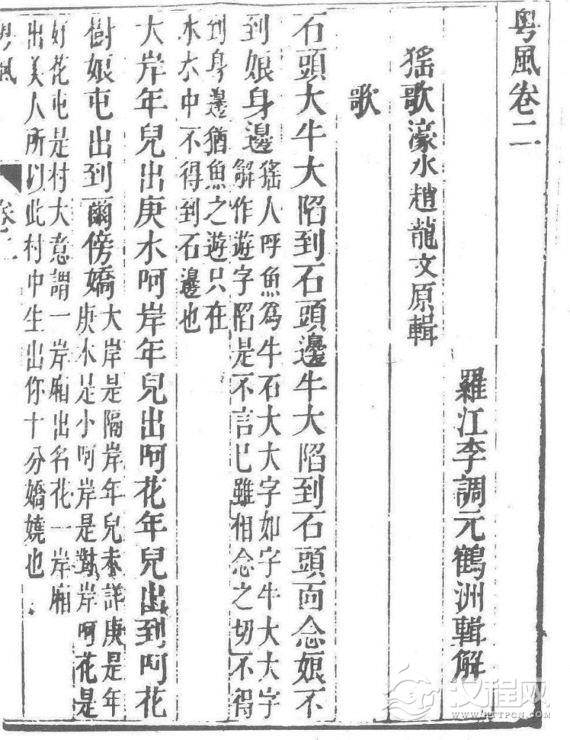 粵風卷二
羅江李調元鶴洲輯解
猺歌濠水趙龍文原輯
歌
石頭大牛大陷到石頭邊牛大陷到石頭靣念娘不
到娘身邊
猺人呼魚爲牛石大大字如字牛大大字
解作遊字陷是不言巳雖相念之切不得
到身邊猶魚之遊只在
水大中不得到石邊也
大岸年兒出庚木呵岸年兒出呵花年兒出到呵花
樹娘屯出到爾傍嬌
大岸是隔岸年兒未詳庚是年
庚木是小呵岸是對岸呵花是
好花屯是村大意謂一岸廂出名花一岸廂
出美人所以此村中生出你十分嬌嬈也
汉程网
WWW.HTTPCN.COM